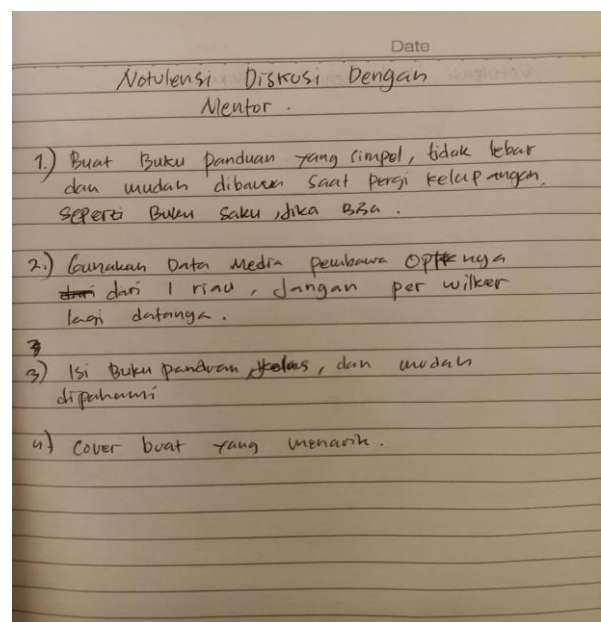 Date
Notulensi Diskusi Dengan
Mentor.
1.) Buat Buku panduan yang simpel, tidak lebar
dan mudah dibawa saat pergi kelapangan,
seperti Buku saku, jika Bisa.
2.) Gunakan Data Media pembawa OPTK nya
dari 1 riau, Jangan per wilker
lagi datanya.
3) Isi Buku panduan jelas, dan mudah
dipahami
4) Cover buat yang menarik.